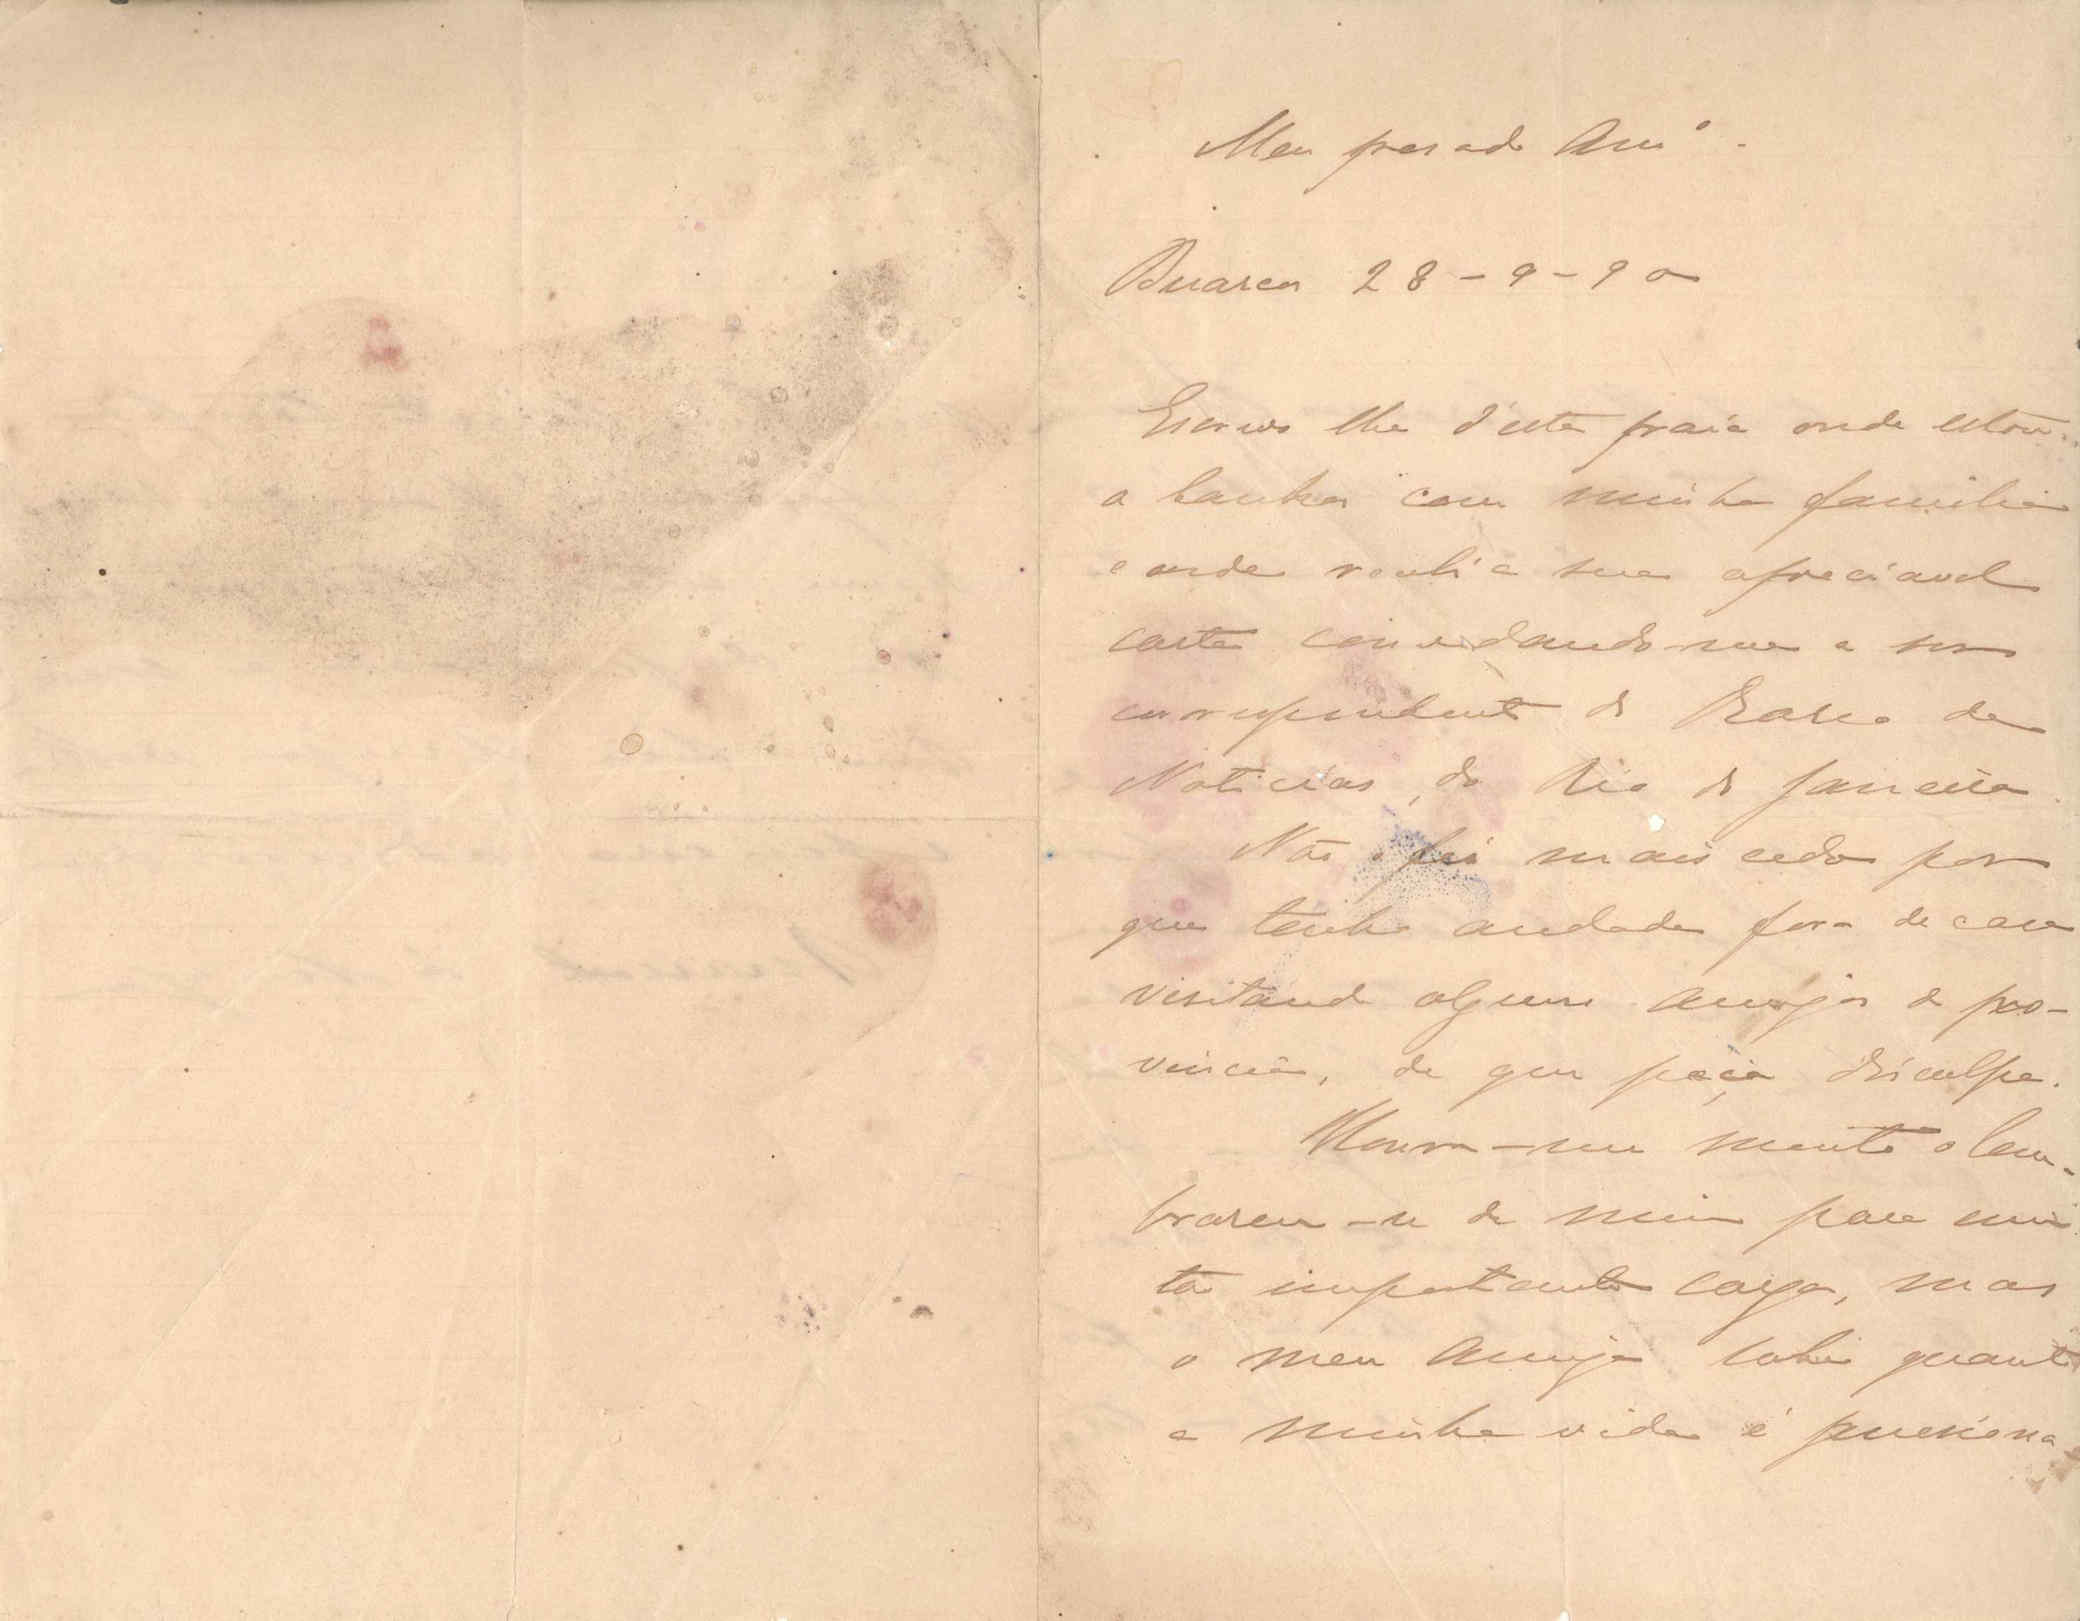 Meu presado Amº.
Buarcos 28-9-90
Escrevo lhe d'esta praia onde estou
a banhos com minha familia
e onde recebi a sua apreciavel
carta convidando-me a ser
correspondente do
Noticias, do Rio de Janeiro.
Não o fiz mais cedo por
que tenho andado fora de casa
visitando alguns amigos da pro-
vincia, de que peço disculpa.
Honra-me muito o lem-
brarem-se de mim para
importante cargo, mas
o meu Amigo sabe quanto
a minha vida é